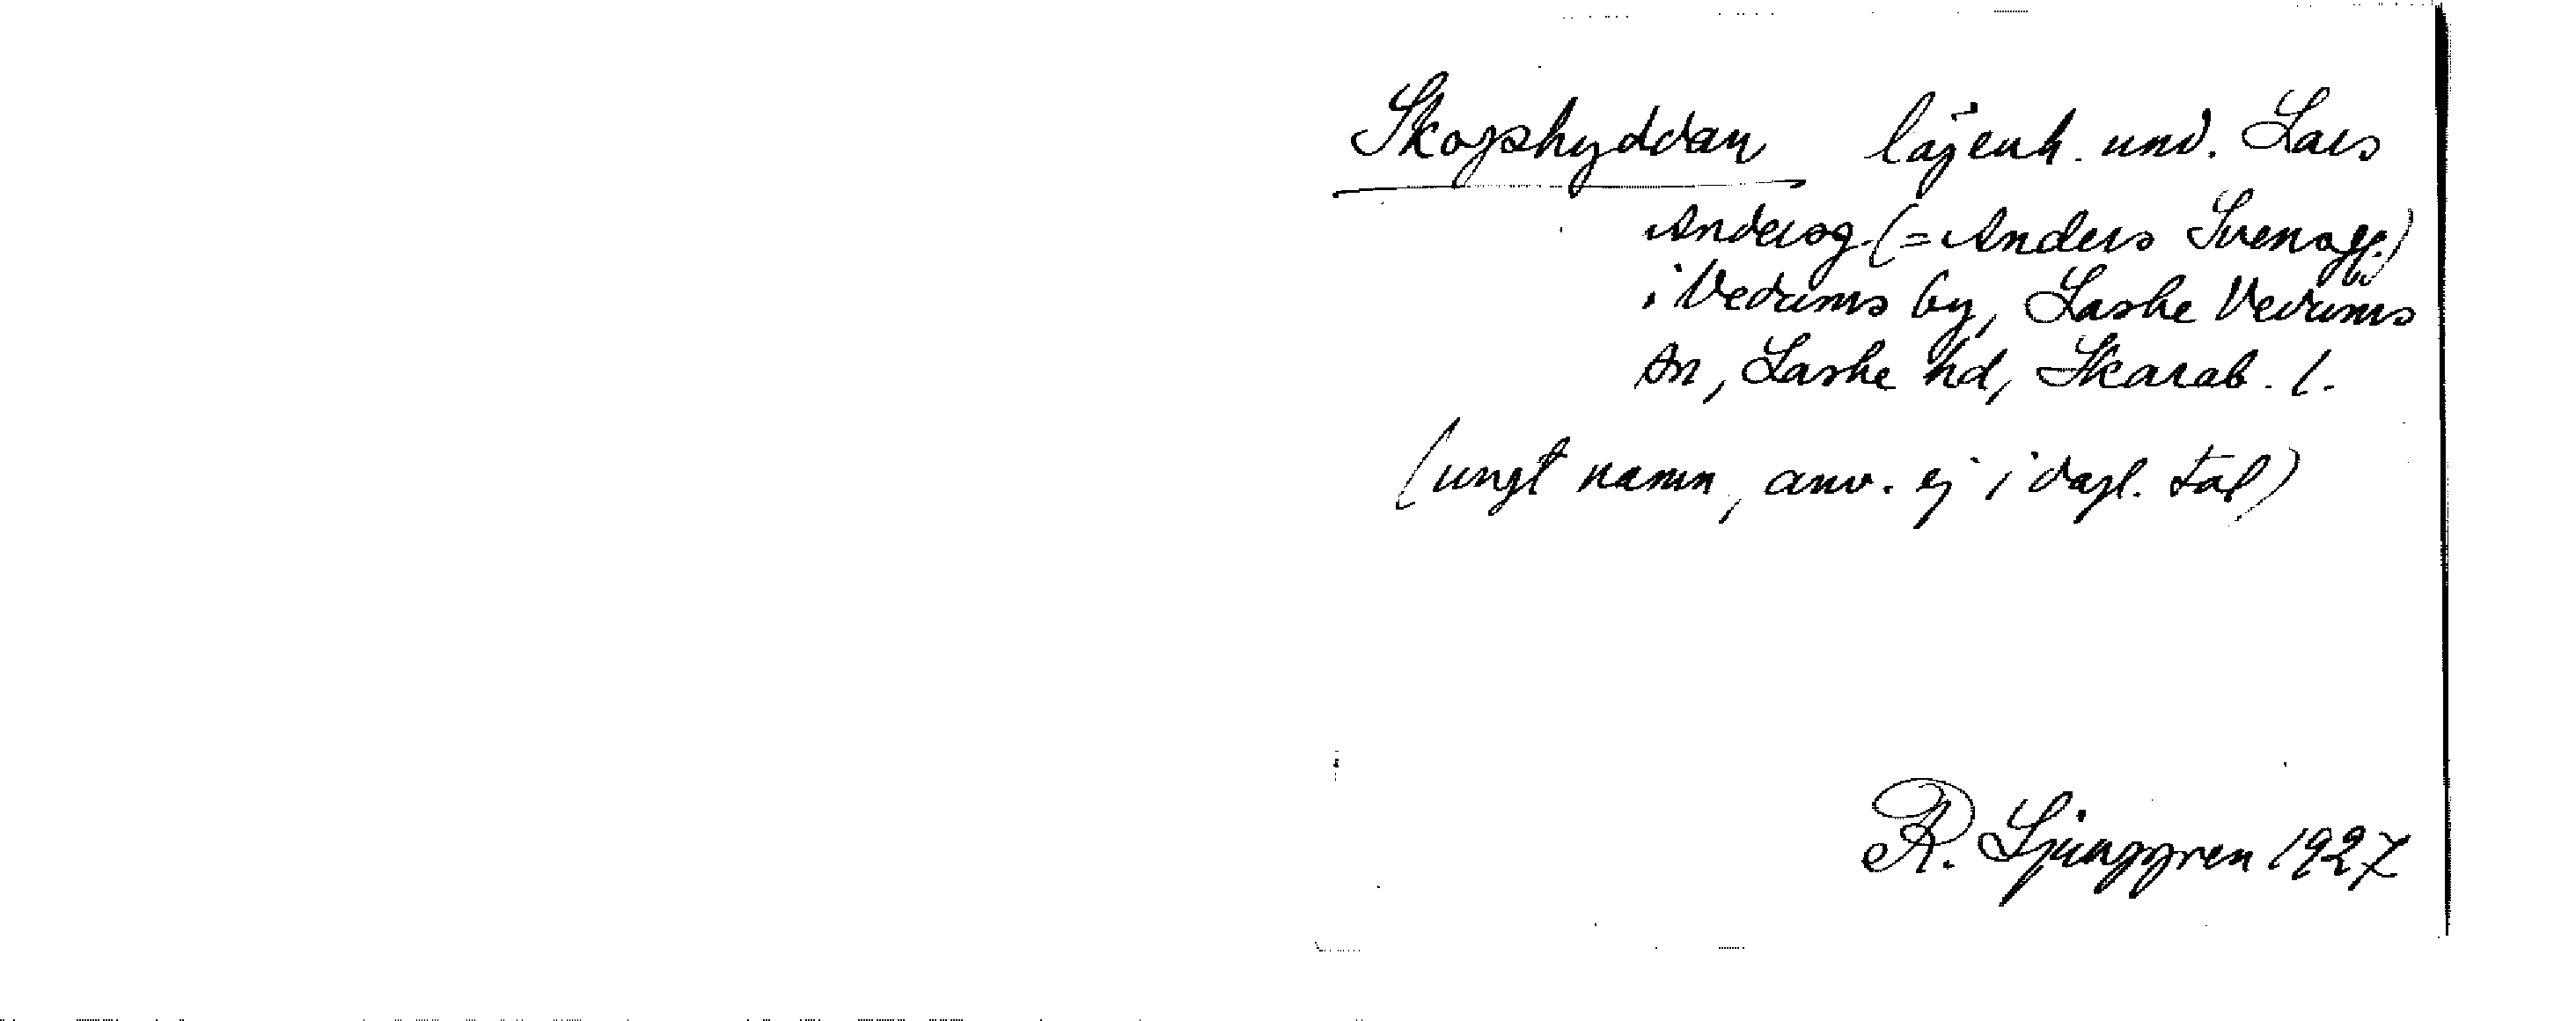 Skogshyddan lägenh. und. Lars
Andersg. (= Anders Svensg.)
i Vedums by, Laske Vedums
sn, Laske hd, Skarab. l.
(ungt namn, anv. ej i dagl. tal)
R. Ljunggren 1927